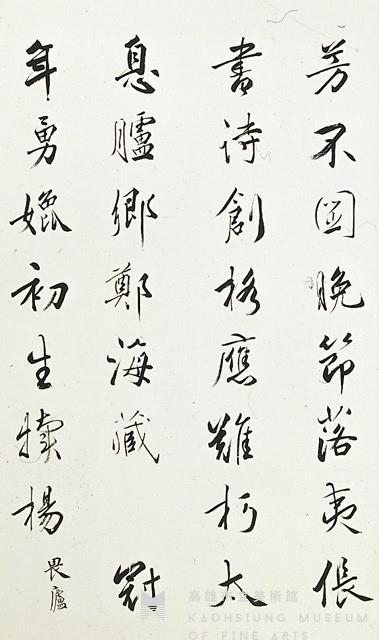 芳不圖晚節落夷倀
書詩創格應難朽大
息臚鄉鄭海藏
年勇初生犢楊
畏廬
高雄市立美術館
KAOHSIUNG MUSEUM
OF FINE ARTS